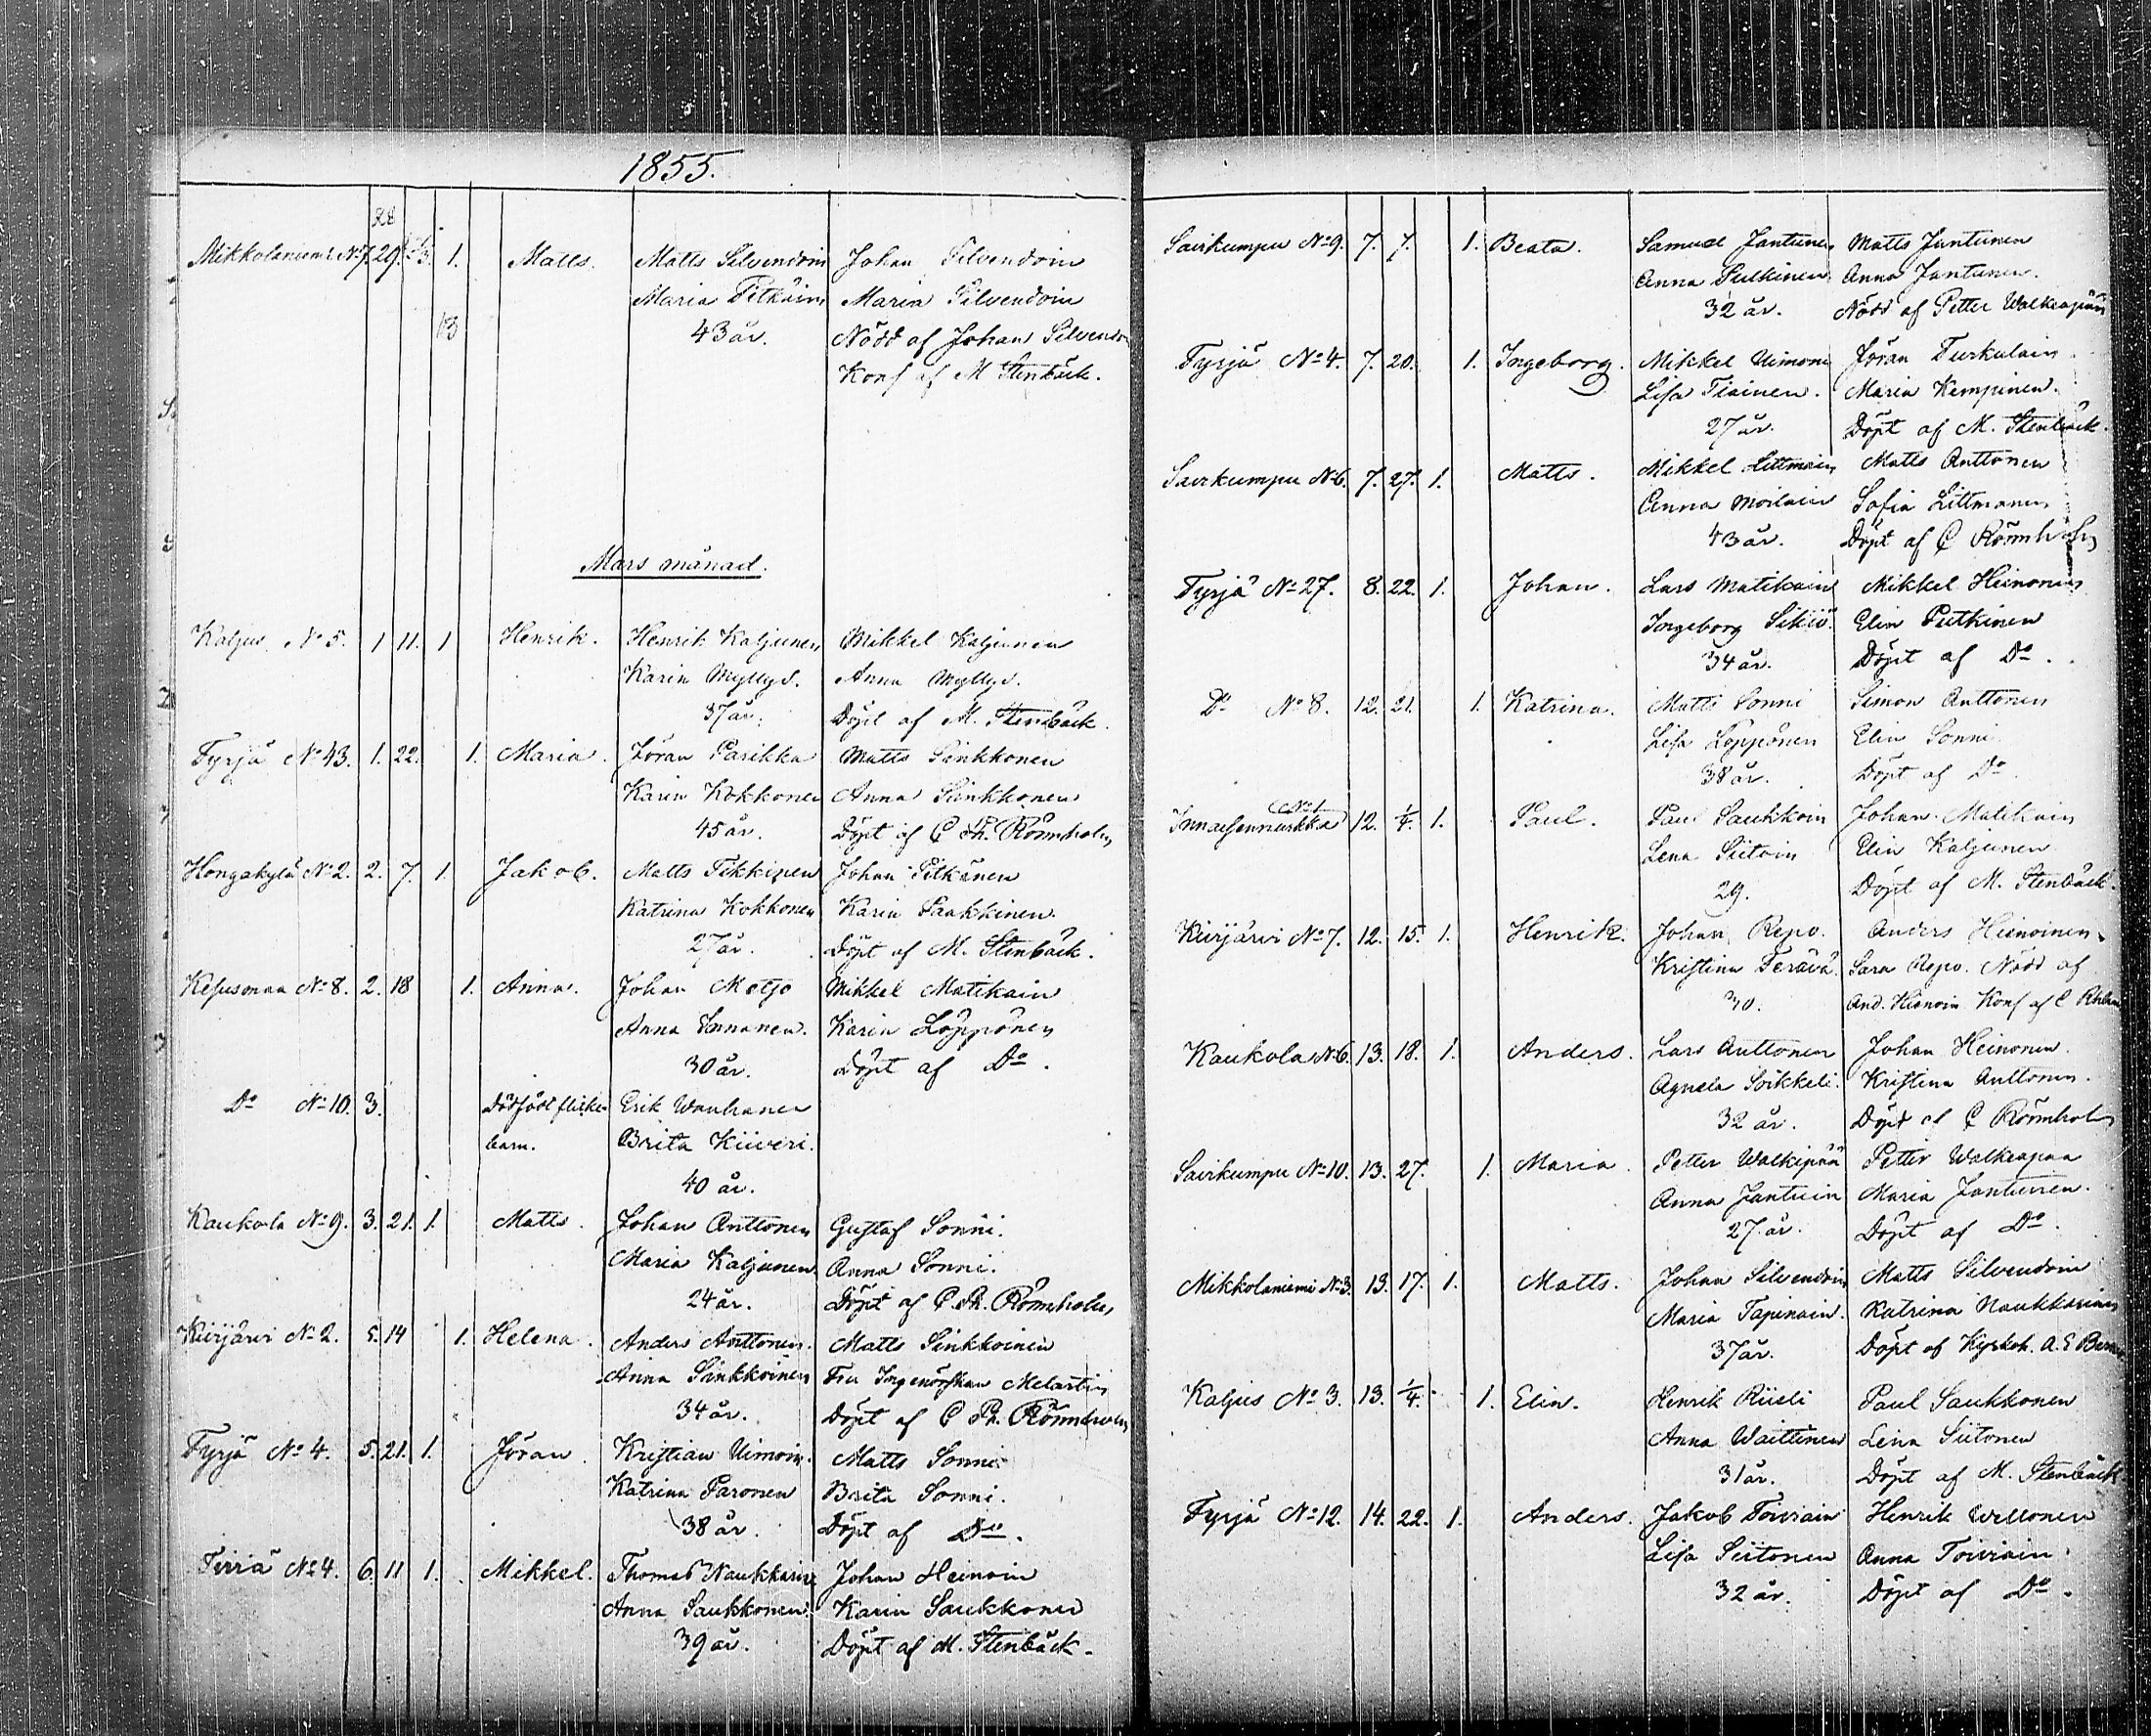 1855.
28
Mikkolaniemi No 7. 29. 2/3. 1. Matts. Matts Silvendoin Johan Silvendoin
Maria Pitkäin Maria Silvendoin
13 43 år. Nödd af Johan Silvendoin
Konf af M Stenbäck.
Mars månad.
Kaljus No 5. 1 11. 1 Henrik. Henrik Kaljunen Mikkel Kaljunen
Karin Myllys. Anna Myllys.
37 år. Döpt af M. Stenbäck.
Tyrjä No 43. 1. 22. 1. Maria. Jöran Parikka Matts Sinkkonen
Karin Kokkonen Anna Sinkkonen
45 år. Döpt af C Th. Römnholm
Hongakylä No 2. 2. 7. 1. Jakob. Matts Tikkinen Johan Pitkänen
Katrina Kokkonen Karin Paakkinen.
27 år. Döpt af M. Stenbäck.
Kesusmaa No 8. 2. 18 1. Anna. Johan Motjo Mikkel Matikain
Anna Innanen. Karin Löppönen
30 år. Döpt af Do.
Do No 10. 3. Dödfödt flicke Erik Wauhanen
barn. Brita Kiiveri.
40 år.
Kaukola No 9. 3. 21. 1. Matts. Johan Anttonen Gustaf Sonni.
Maria Kaljunen Anna Sonni.
24 år. Döpt af C. Th. Römnholm
Kirjärvi No 2. 5. 14 1. Helena. Anders Anttonen. Matts Sinkkoinen
Anna Sinkkoinen Fru Ingenörskan Melartin
34 år. Döpt af C Th. Römnholm
Tyrjä No 4. 5. 21. 1. Jöran. Kristian Uimoin. Matts Sonni
Katrina Paronen Brita Sonni.
38 år. Döpt af Do.
Tirrä No 4. 6. 11 1. Mikkel. Thomas Naukkarin Johan Heinoin
Anna Saukkonen Karin Saukkonen
39 år. Döpt af M. Stenbäck.
Sairkumpu No 9. 7. 7. 1. Beata. Samuel Jantunen Matts Jantunen
Anna Pulkinen Anna Jantunen.
32 år. Nödd af Petter Walkeapää
Tyrjä No 4. 7. 20. 1. Ingeborg. Mikkel Uimonen Jöran Turkulain
Lisa Tiainen. Maria Kempinen.
27 år. Döpt af M. Stenbäck.
Sairkumpu No 6. 7. 27. 1. Matts. Mikkel Littmain Matts Anttonen
Anna Moilain Sofia Littmanen
43 år. Döpt af C Römnholm
Tyrjä No 27. 8. 22. 1. Johan. Lars Matikain Mikkel Heinonen
Ingeborg Sikiö. Elin Putkinen
34 år. Döpt af Do.
Do No 8. 12. 21. 1. Katrina. Matts Sonni Simon Anttonen
Lisa Löppönen Elin Sonni
38 år. Döpt af Do
No 1
12. 1/4. 1. Paul. Paul Saukkoin Johan Matikain
Lena Siitoin Elin Kaljunen
29. Döpt af M. Stenbäck.
Kirjärvi No 7. 12. 15. 1. Henrik. Johan Repo. Anders Heinoinen
Kristina Terävä. Sara Repo. Nödd af
30. And. Heinoin Konf af C Rhlm
Kaukola No 6. 13. 18. 1. Anders. Lars Anttonen Johan Heinonen.
Agneta Soikkeli. Kristina Anttonen.
32 år. Döpt af C Römnholm
Sairkumpu No 10. 13. 27. 1. Maria. Petter Walkepää Petter Walkeapaa
Anna Jantuin Maria Jantunen.
27 år. Döpt af Do.
Mikkolaniemi No 3. 13. 17. 1. Matts. Johan Silvendoin Matts Silvendoin
Maria Tapinain. Katrina Naukkarinen
37 år. Döpt af Kyrkoh. A. E
Kaljus No 3. 13. 1/4. 1. Elin. Henrik Riieli Paul Saukkonen
Anna Waittinen Lena Siitonen
31 år. Döpt af M. Stenbäck
Tyrjä No 12. 14. 22. 1. Anders. Jakob Toiviain Henrik Weltonen
Lisa Siitonen Anna Toiviain.
32 år. Döpt af Do.